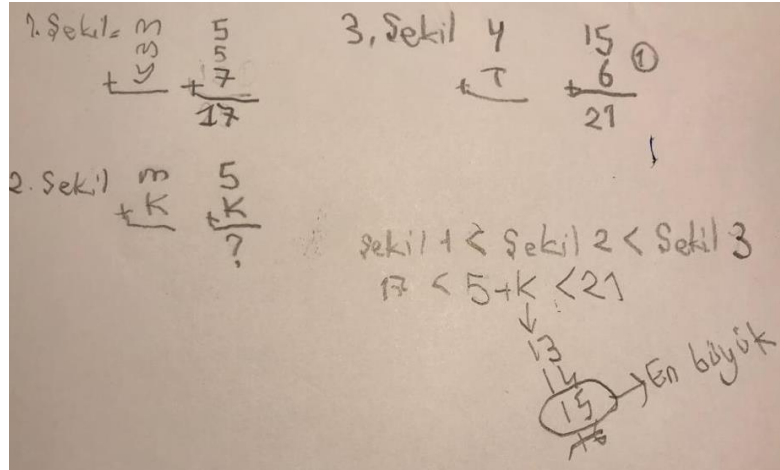 1. Şekil= m 5
m 5
+ y + 7
17
3. Şekil Y 15
+ T + 6 1
21
2. Şekil m 5
+ K + K
?
Şekil 1 < Şekil 2 < Şekil 3
17 < 5+K < 21
13
14
15 → En büyük